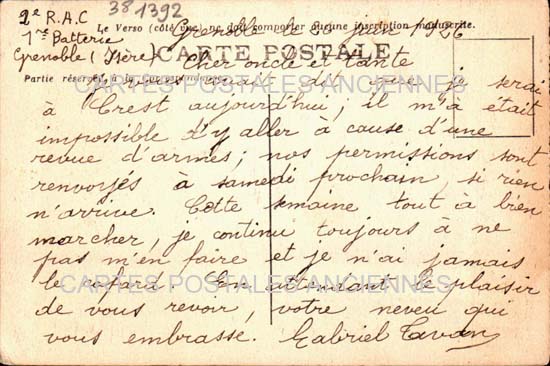 2e R.A.C
38 1392
Le Verso (côté vue) ne doit comporter aucune inscription manuscrite.
1re Batterie
Grenoble le juin 1926
Grenoble (Isère)
CARTE POSTALE
Cher oncle et tante
Partie réservée à la Correspondance
CARTES POSTALES ANCIENNES
dit que je serai
à Crest aujourd'hui; il m'a était
impossible d'y aller à cause d'une
revue d'armes; nos permissions sont
renvoyés à samedi prochain, si rien
n'arrive. Cette semaine tout à bien
marcher, je continu toujours à ne
pas m'en faire et je n'ai jamais
CARTES POSTALES ANCIENNES
le cafard. En attendant le plaisir
de vous revoir, votre neveu qui
vous embrasse. Gabriel Tavan